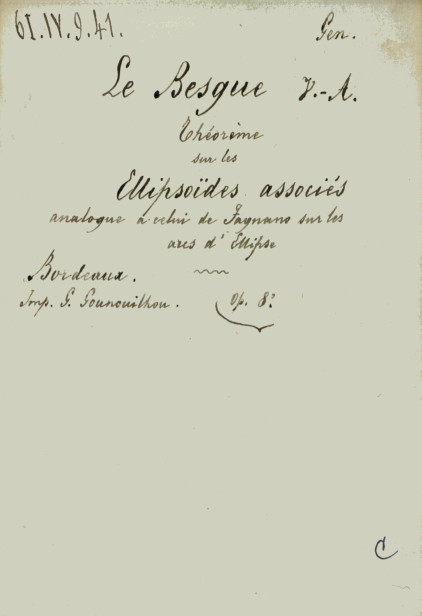 61.IV.9.41.
Gen.
Le Besgue V.-A.
Théorème
sur les
Ellipsoïdes associés
analogue à celui de Fagnano sur les
arcs d'Ellipse
Bordeaux.
Imp. G. Gounouilhou.
Op. 8º
C